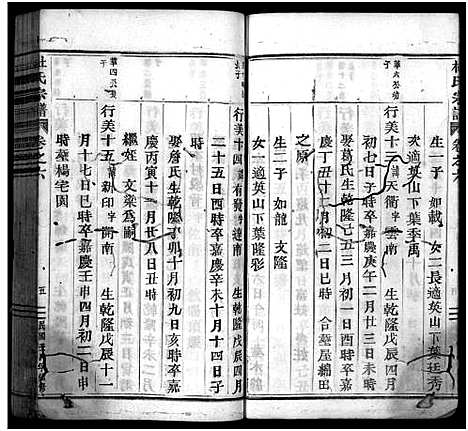 生一子 如載 女二長適英山下葉廷秀
次適英山下葉季萬
行美十三 天衢 字雲南 生乾隆戊辰四月
初二日巳時卒嘉慶庚午二月廿三日未時
娶葛氏生乾隆己丑三月初一日酉時卒嘉
慶丁丑十二月初二日巳時 合葬屋綿田
之原
生二子 如龍 文隆
女一適英山下葉隆彩
行美十四 有發 字達南 生乾隆戊辰四月
二十五日四時卒嘉慶辛未十月十四日亥
時
娶詹氏生乾隆辛卯十月初九日亥時卒嘉
慶丙寅十一月廿八日丑時
繼娶 文榮爲嗣
行美十五 新印 字開南 生乾隆戊辰十一
月十七日巳時卒嘉慶壬申四月初二日申
時葬楊宅園
杜氏宗譜 卷之六
五